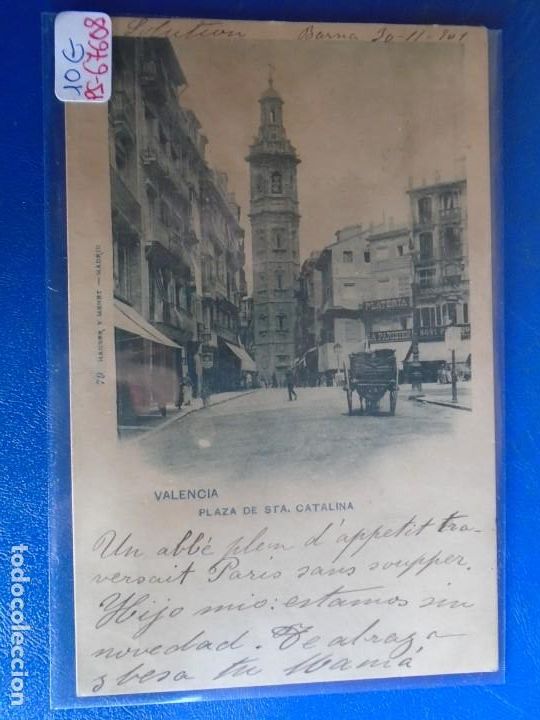 10€
PS-67608
Solution Barna 30-11-901
79 HAUSER Y MENET.—MADRID
PLATERIA
VALENCIA
PLAZA DE STA. CATALINA
Un abbé plein d'appetit tra-
versait Paris sans soupper.
Hijo mio: estamos sin
novedad. Te abraza
y besa tu Mamá
todocoleccion.net